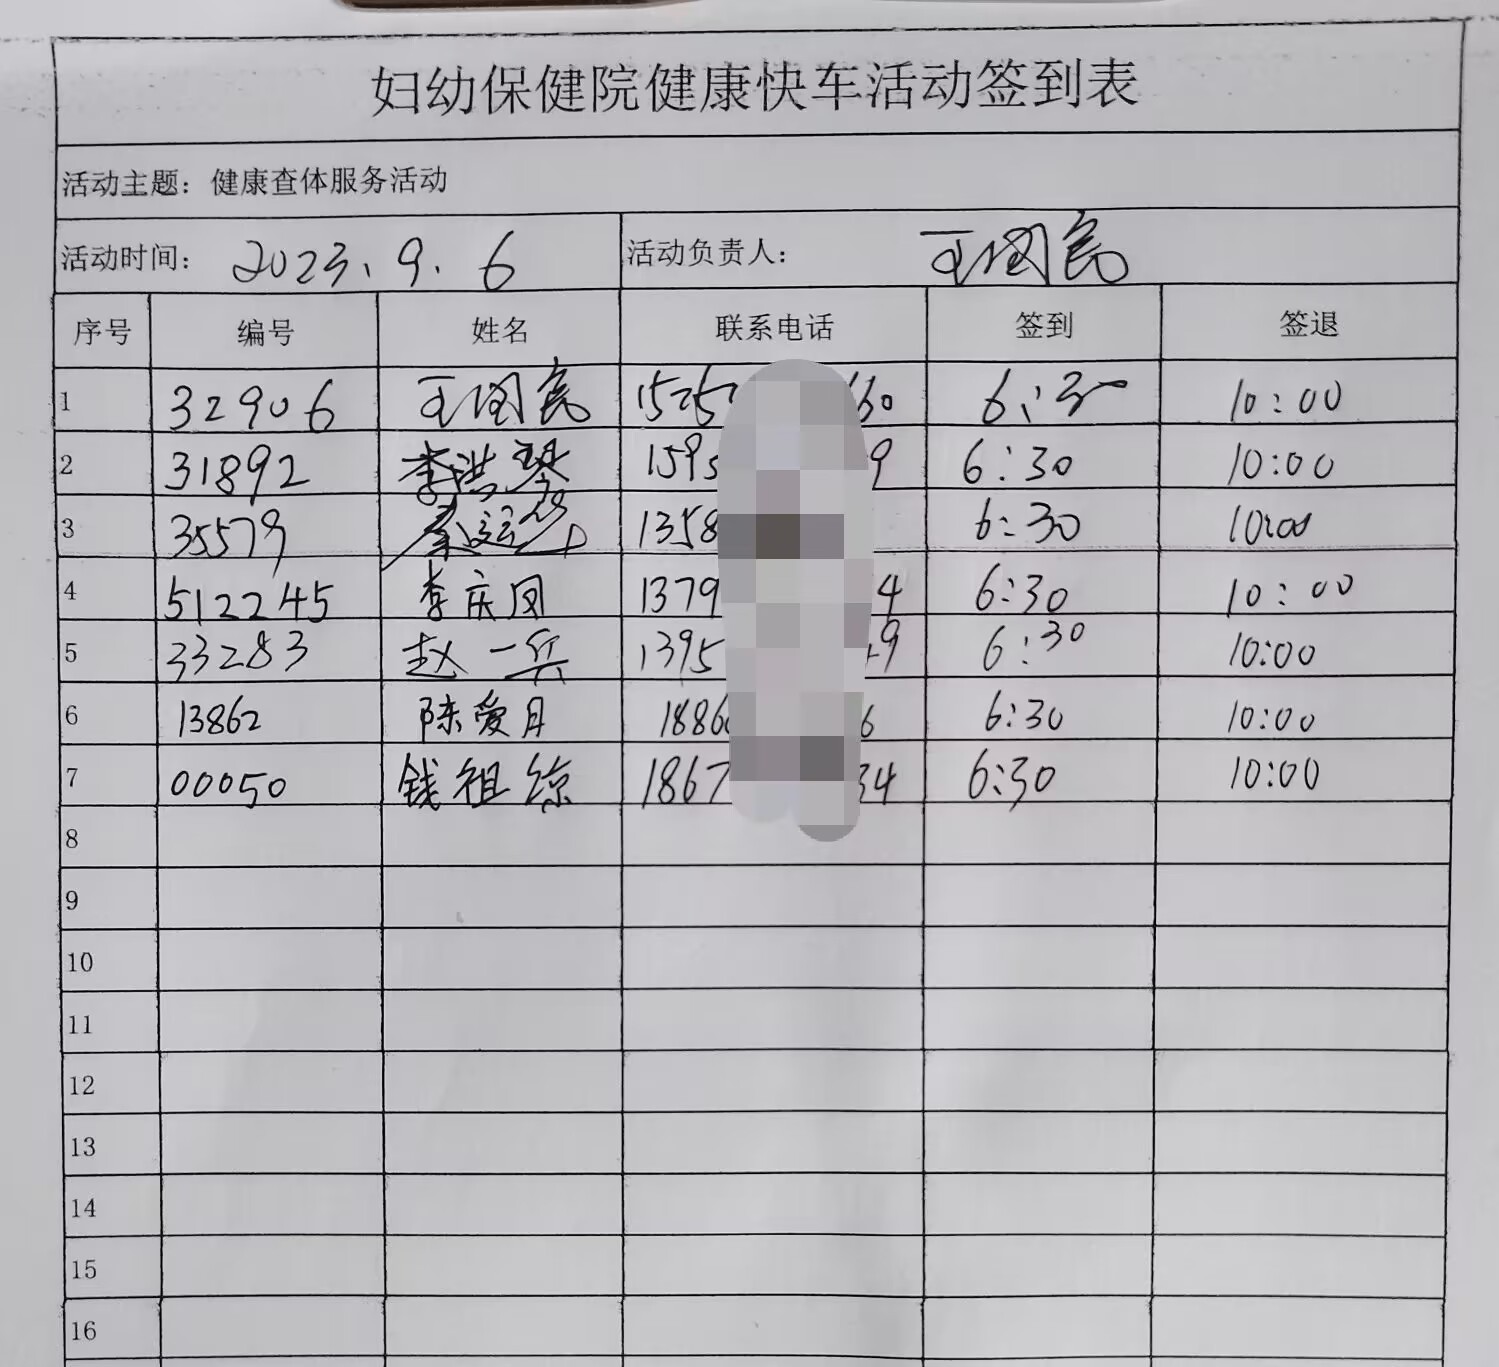 妇幼保健院健康快车活动签到表
活动主题：健康查体服务活动
活动时间： 2023.9.6 活动负责人： 王国民
序号 编号 姓名 联系电话 签到 签退
1 32906 王国民 15 60 6:30 10:00
2 31892 李洪琴 159 9 6:30 10:00
3 35579 秦运华 1358 6:30 10:00
4 512245 李庆凤 1379 4 6:30 10:00
5 33283 赵一兵 1395 49 6:30 10:00
6 13862 陈爱月 1886 6 6:30 10:00
7 00050 钱祖综 1867 34 6:30 10:00
8
9
10
11
12
13
14
15
16